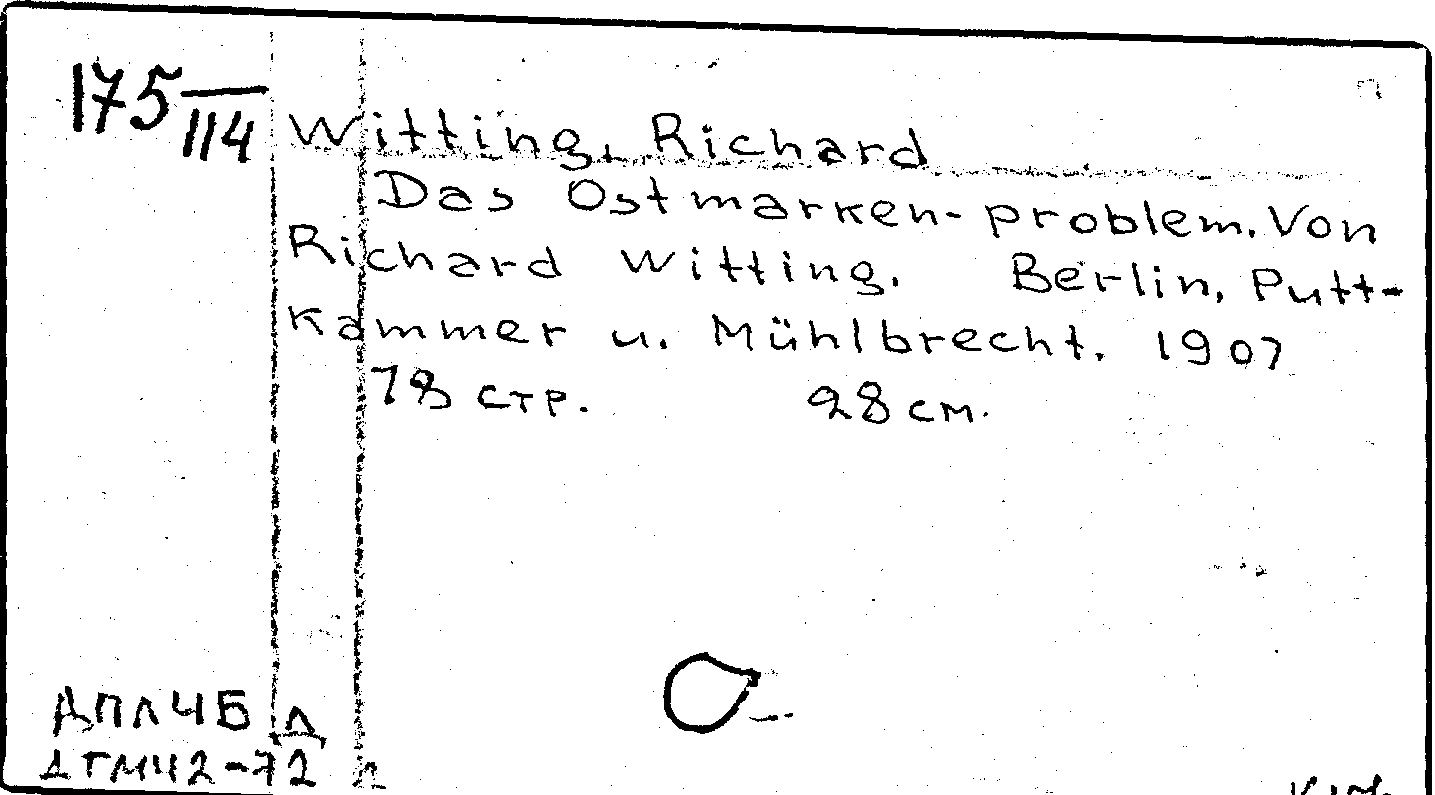 175/114
Witting, Richard
Das Ostmarken-problem. Von
Richard Witting. Berlin, Putt-
kammer u. Mühlbrecht. 1907
78 стр. 28 см.